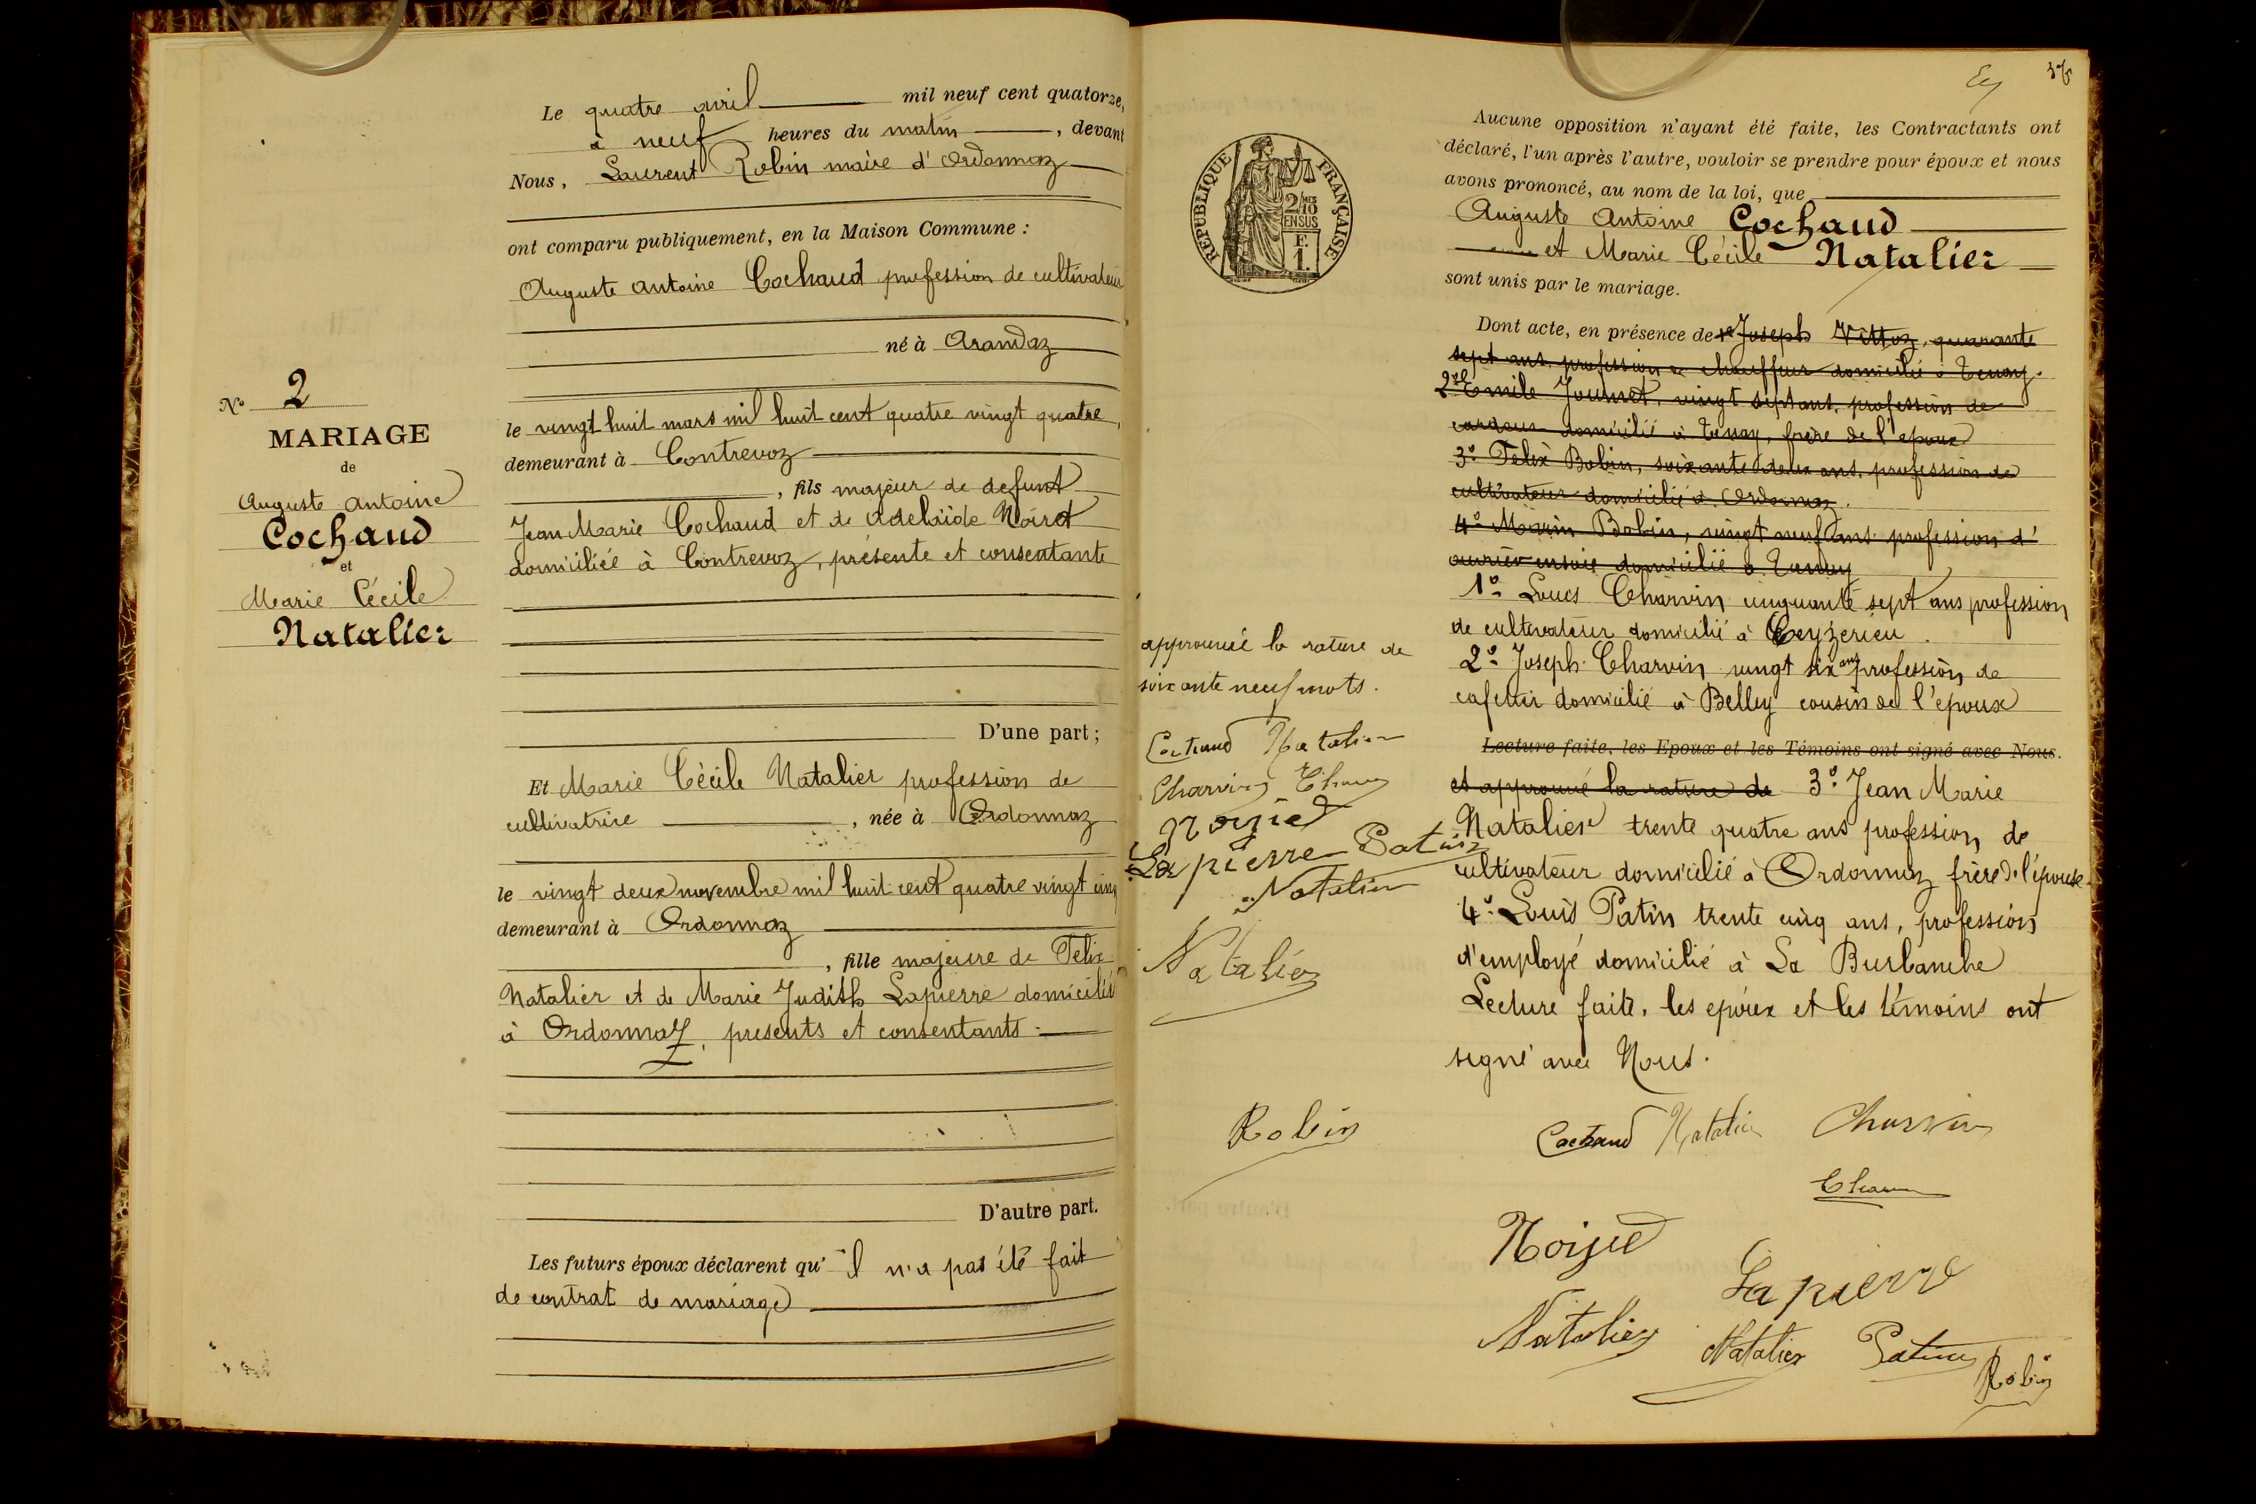 Le quatre avril mil neuf cent quatorze,
à neuf heures du matin, devant
Nous, Laurent Robin maire d'Ordonnaz
ont comparu publiquement, en la Maison Commune :
Auguste Antoine Cochaud profession de cultivateur
né à Arandaz
le vingt huit mars mil huit cent quatre vingt quatre,
demeurant à Contrevoz
, fils majeur de defunt
Jean Marie Cochaud et de Adelaïde Noiret
domiciliée à Contrevoz, présente et consentante
D'une part ;
Et Marie Cécile Natalier profession de
cultivatrice, née à Ordonnaz
le vingt deux novembre mil huit cent quatre vingt cinq
demeurant à Ordonnaz
, fille majeure de Felix
Natalier et de Marie Judith Lapierre domiciliés
à Ordonnaz, presents et consentants.
D'autre part.
Les futurs époux déclarent qu'il n'a pas été fait
de contrat de mariage
N° 2
MARIAGE
de
Auguste Antoine
Cochaud
et
Marie Cécile
Natalier
REPUBLIQUE FRANÇAISE
2/10
EN SUS
F.
1.
Aucune opposition n'ayant été faite, les Contractants ont
déclaré, l'un après l'autre, vouloir se prendre pour époux et nous
avons prononcé, au nom de la loi, que
Auguste Antoine Cochaud
et Marie Cécile Natalier
sont unis par le mariage.
Dont acte, en présence de 1° Joseph Vittoz, quarante
sept ans, profession de chauffeur domicilié à Tenay.
2° Emile Journet, vingt sept ans, profession de
cardeur domicilié à Tenay, frère de l'epoux
3° Felix Bobin, soixante deux ans, profession de
cultivateur domicilié à Ordonnaz.
4° Marin Bobin, vingt neuf ans profession d'
ouvrier en soie domicilié à Tenay
1° Louis Charvin cinquante sept ans profession
de cultivateur domicilié à Ceyzerieu.
2° Joseph Charvin vingt six ans profession de
cafetier domicilié à Belley cousin de l'epoux
Lecture faite, les Epoux et les Témoins ont signé avec Nous.
et approuvé la rature de 3° Jean Marie
Natalier trente quatre ans profession de
cultivateur domicilié à Ordonnaz frère de l'épouse.
4° Louis Patin trente cinq ans, profession
d'employé domicilié à La Burbanche
Lecture faite, les epoux et les témoins ont
signé avec Nous.
approuvé la rature de
soixante neuf mots.
Cochaud Natalier
Charvin
Lapierre Patin
Natalier
Natalier
Robin
Cochaud Natalier Charvin
Lapierre
Natalier Natalier Patin Robin